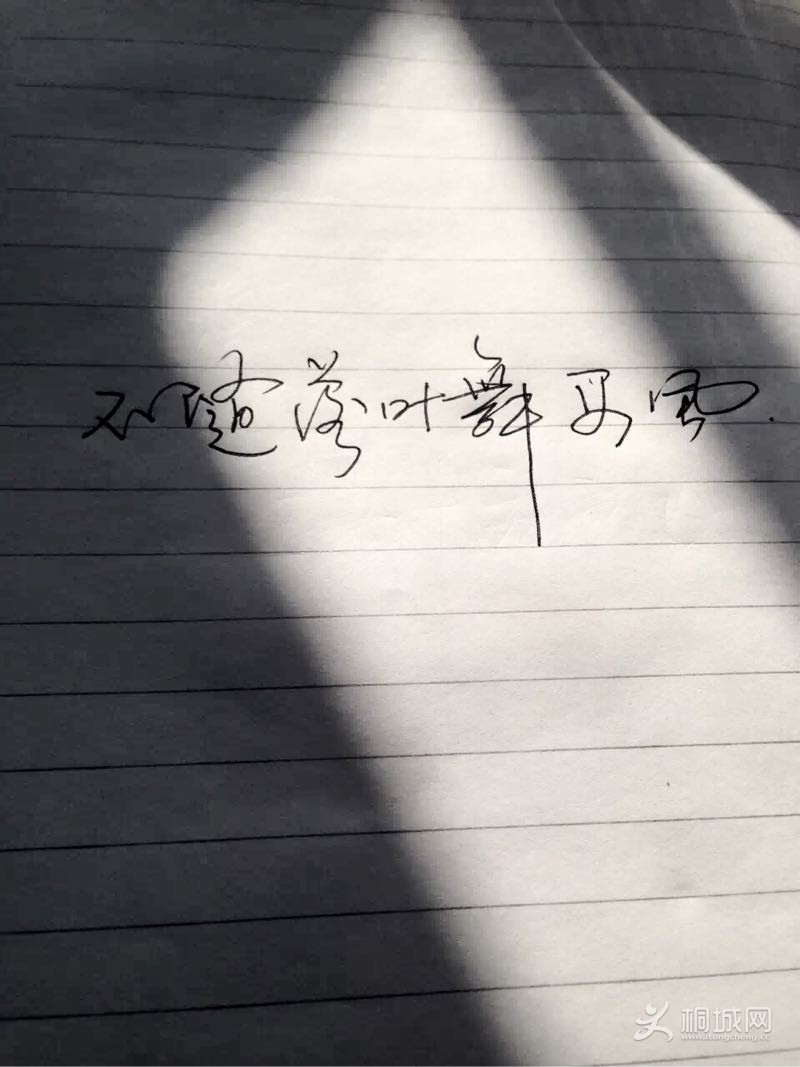 不随落叶舞风.
桐城网
www.itongcheng.cc